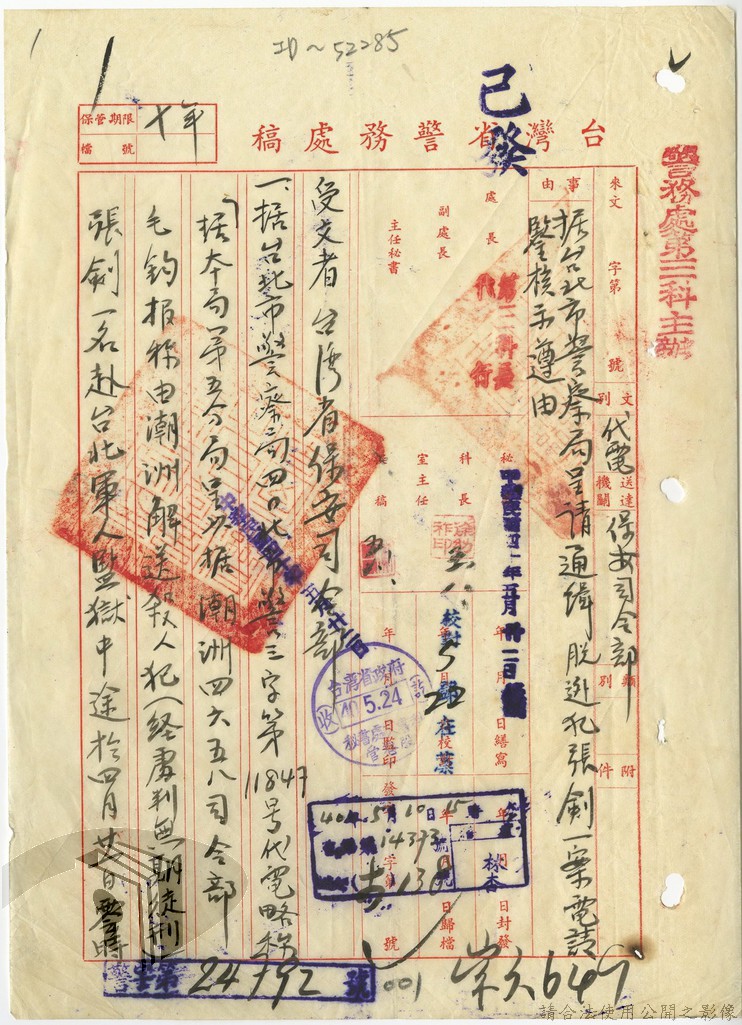 ID~52285
已發
台灣省警務處稿
保管期限 十年
檔號
警務處第三科主辦
來文 字第 號
文別 代電
送達機關 保安司令部
類別
附件
事由
据台北市警察局呈請通緝脫逃犯張劍一案電請
鑒核示遵由
處長
副處長
主任秘書
第三科長
代行
秘書
科長
室主任
稿
年 月 日繕寫
校對
年 月 日監印
年 月 日封發
日歸檔
字第 號
台灣省政府
收 40.5.24
40年5月10日15時
14373
138
受文者 台湾省保安司令部
一、据台北市警察局四〇北市警三字第11847号代電略称
「据本局第五分局呈以据潮洲四六五八司令部
毛鈞报称由潮洲解送殺人犯(經處判無期徒刑)
張劍一名赴台北軍人監獄中途於四月廿日 時
警 字第24792號
001
請合法使用公開之影像